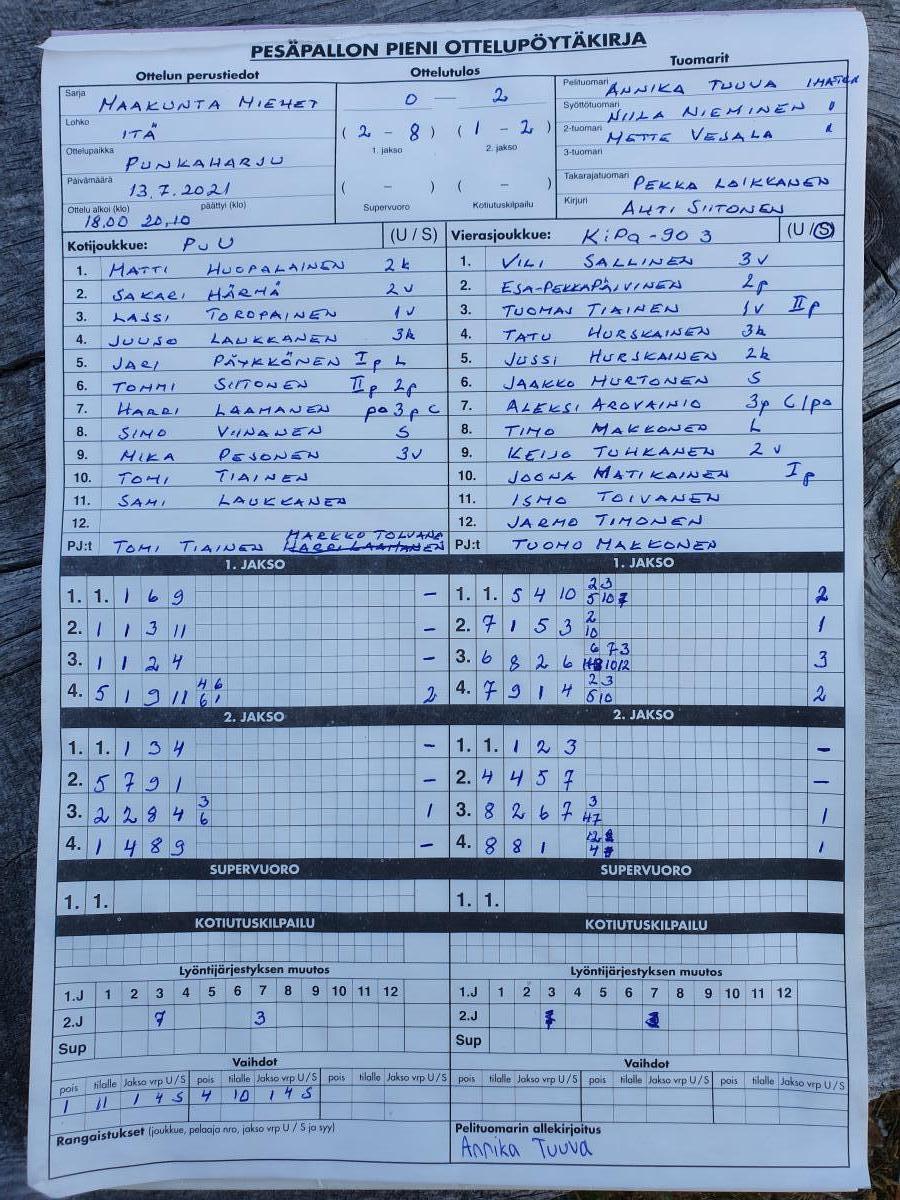 PESÄPALLON PIENI OTTELUPÖYTÄKIRJA
Ottelun perustiedot
Ottelutulos
Tuomarit
Sarja MAAKUNTA MIEHET
Lohko ITÄ
Ottelupaikka PUNKAHARJU
Päivämäärä 13.7.2021
Ottelu alkoi (klo) päättyi (klo)
18.00 20.10
0 — 2
( 2 - 8 ) ( 1 - 2 )
1. jakso 2. jakso
( - ) ( - )
Supervuoro Kotiutuskilpailu
Pelituomari ANNIKA TUUVA IMATRA
Syöttötuomari NIILA NIEMINEN "
2-tuomari METTE VESALA "
3-tuomari
Takarajatuomari PEKKA LOIKKANEN
Kirjuri AHTI SIITONEN
Kotijoukkue: PuU (U / S)
1. MATTI HUOPALAINEN 2k
2. SAKARI HÄRMÄ 2v
3. LASSI TOROPAINEN 1v
4. JUUSO LAUKKANEN 3k
5. JARI PÄYKKÖNEN Ip L
6. TOMMI SIITONEN IIp 2p
7. HARRI LAAMANEN po 3p C
8. SIMO VIINANEN S
9. MIKA PESONEN 3v
10. TOMI TIAINEN
11. SAMI LAUKKANEN
12.
PJ:t TOMI TIAINEN HARRI LAAMANEN MARKKO TOLVANA
Vierasjoukkue: KiPa-90 3 (U / S)
1. VILI SALLINEN 3v
2. ESA-PEKKA PÄIVINEN 2p
3. TUOMAS TIAINEN 1v IIp
4. TATU HURSKAINEN 3k
5. JUSSI HURSKAINEN 2k
6. JAAKKO HURTONEN S
7. ALEKSI AROVAINIO 3p C/po
8. TIMO MAKKONEN L
9. KEIJO TUHKANEN 2v
10. JOONA MATIKAINEN Ip
11. ISMO TOIVANEN
12. JARMO TIMONEN
PJ:t TUOMO MAKKONEN
1. JAKSO
1. 1. 1 6 9 -
2. 1 1 3 11 -
3. 1 1 2 4 -
4. 5 1 9 11 4 6 6 1 2
1. JAKSO
1. 1. 5 4 10 2 3 5 10 7 2
2. 7 1 5 3 2 10 1
3. 6 8 2 6 6 7 3 10 12 3
4. 7 9 1 4 2 3 5 10 2
2. JAKSO
1. 1. 1 3 4 -
2. 5 7 9 1 -
3. 2 2 8 4 3 6 1
4. 1 4 8 9 -
2. JAKSO
1. 1. 1 2 3 -
2. 4 4 5 7 -
3. 8 2 6 7 3 47 1
4. 8 8 1 12 4 1
SUPERVUORO
1. 1.
SUPERVUORO
1. 1.
KOTIUTUSKILPAILU
KOTIUTUSKILPAILU
Lyöntijärjestyksen muutos
1.J 1 2 3 4 5 6 7 8 9 10 11 12
2.J 7 3
Sup
Lyöntijärjestyksen muutos
1.J 1 2 3 4 5 6 7 8 9 10 11 12
2.J
Sup
Vaihdot
pois tilalle Jakso vrp U / S pois tilalle Jakso vrp U / S pois tilalle Jakso vrp U / S
1 11 1 4 S 4 10 1 4 S
Vaihdot
pois tilalle Jakso vrp U / S pois tilalle Jakso vrp U / S pois tilalle Jakso vrp U / S
Rangaistukset (joukkue, pelaaja nro, jakso vrp U / S ja syy)
Pelituomarin allekirjoitus
Annika Tuuva